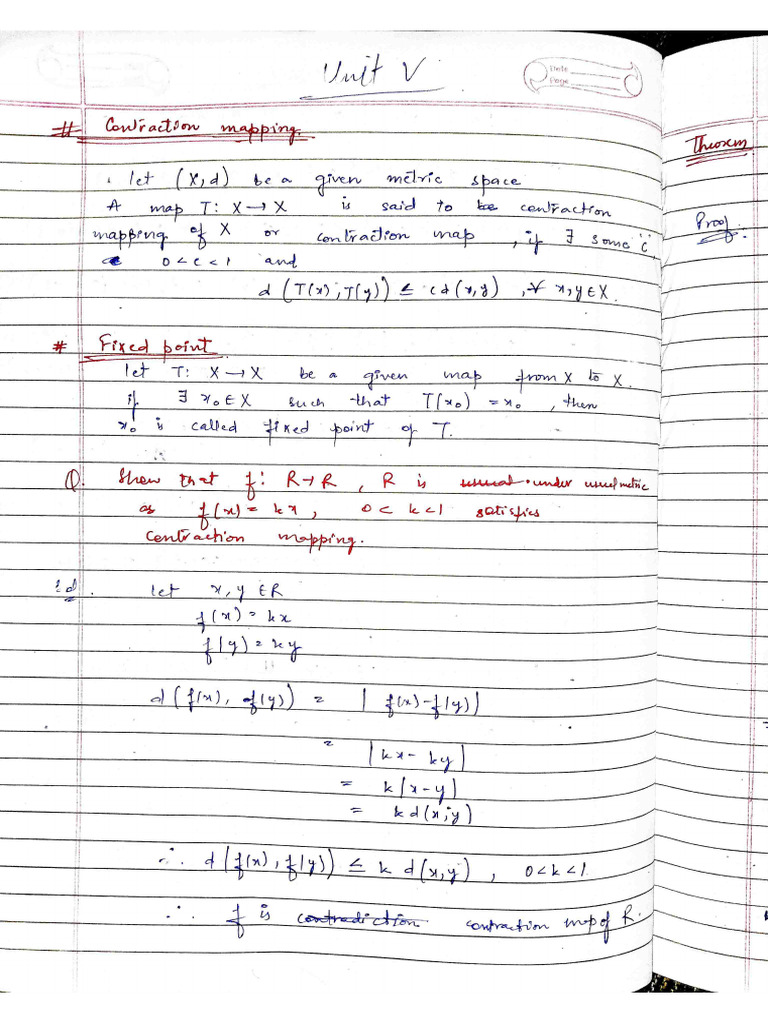 Unit V
Date
Page
# Contraction mapping.
let (X,d) be a given metric space
A map T: X→X is said to be contraction
mapping of X or contraction map, if ∃ some 'c',
0<c<1 and
d(T(x),T(y)) ≤ cd(x,y), ∀ x,y∈X.
# Fixed point
let T: X→X be a given map from X to X.
if ∃ x₀∈X such that T(x₀) = x₀, then
x₀ is called fixed point of T.
Q. Show that f: R→R, R is usual under usual metric
as f(x) = kx, 0<k<1 satisfies
contraction mapping.
let x,y ∈R
f(x) = kx
f(y) = ky
d(f(x), f(y)) = |f(x)-f(y)|
= |kx-ky|
= k|x-y|
= kd(x,y)
∴ d(f(x),f(y)) ≤ k d(x,y), 0<k<1
∴ f is contradiction contraction map of R.
Theorem
Proof: